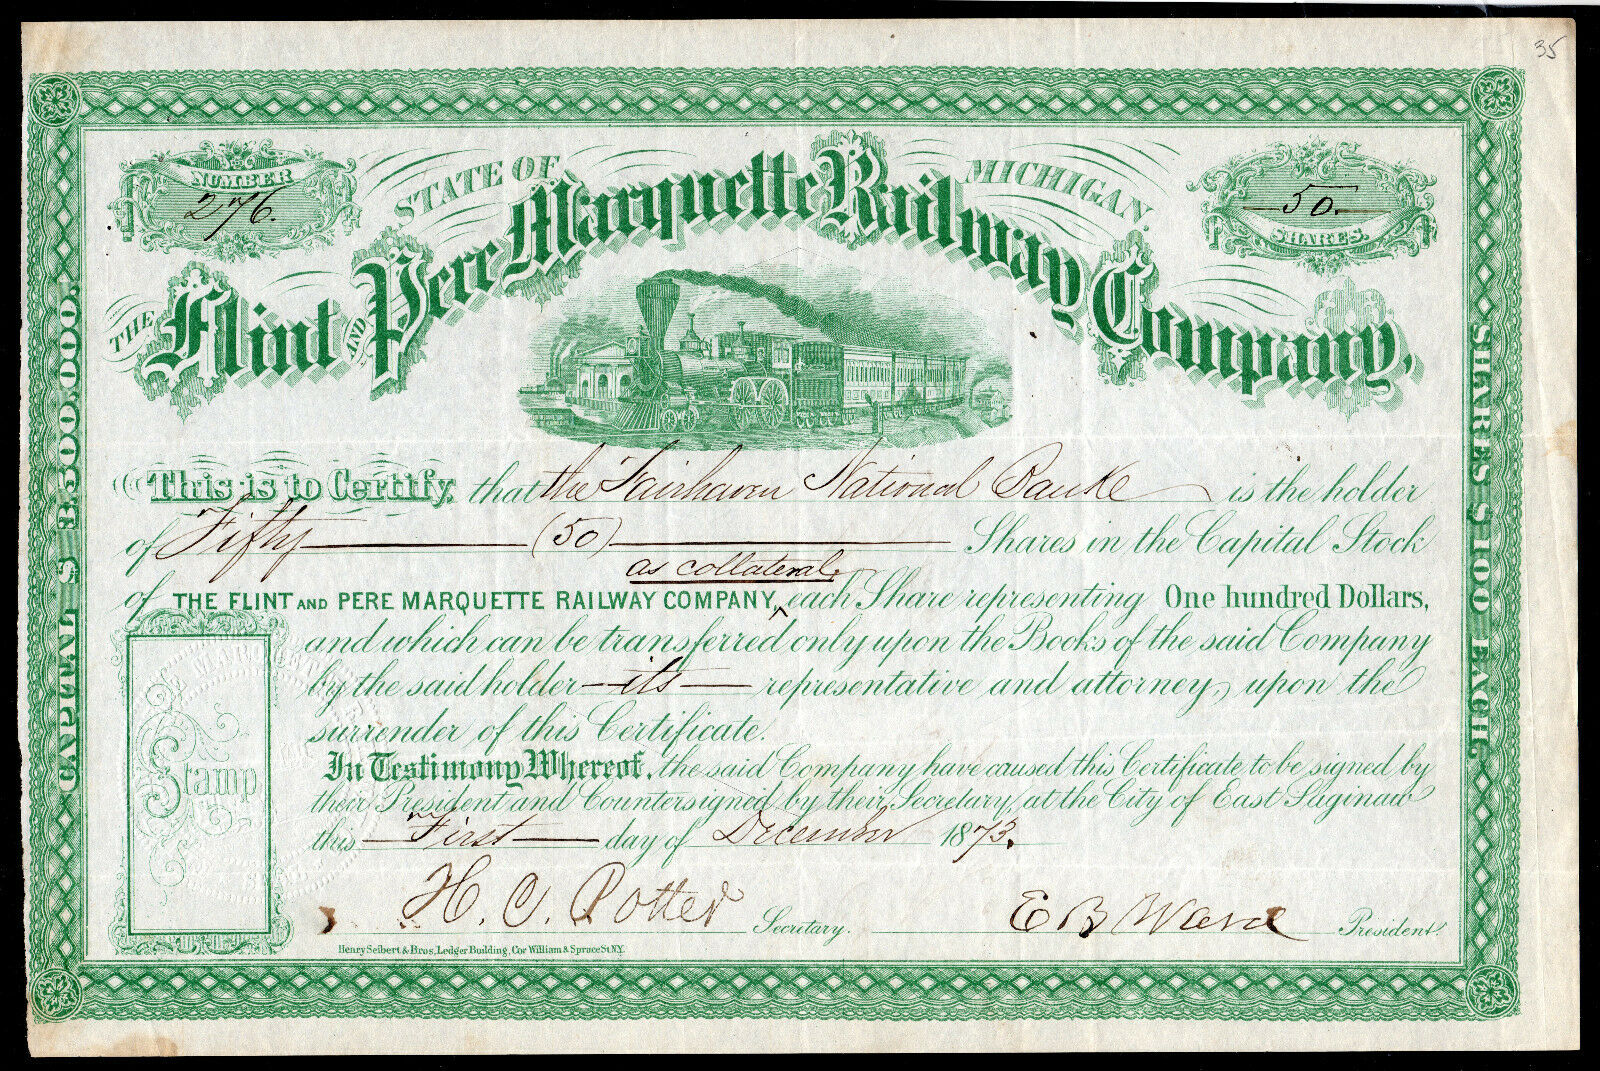 35
NUMBER
276.
STATE OF MICHIGAN
50.
SHARES.
THE Flint AND Pere Marquette Railway Company,
CAPITAL $
SHARES $100 EACH.
This is to Certify, that the Fairhaven National Banke is the holder
of Fifty (50) Shares in the Capital Stock
as collateral
of THE FLINT AND PERE MARQUETTE RAILWAY COMPANY, each Share representing One hundred Dollars,
and which can be transferred only upon the Books of the said Company
by the said holder its representative and attorney, upon the
surrender of this Certificate.
In Testimony Whereof, the said Company have caused this Certificate to be signed by
their President and Countersigned by their Secretary, at the City of East Saginaw
this First day of December 1873.
Stamp
H. C. Potter Secretary. E B Ward President.
Henry Seibert & Bros, Ledger Building, Cor William & Spruce St. N.Y.